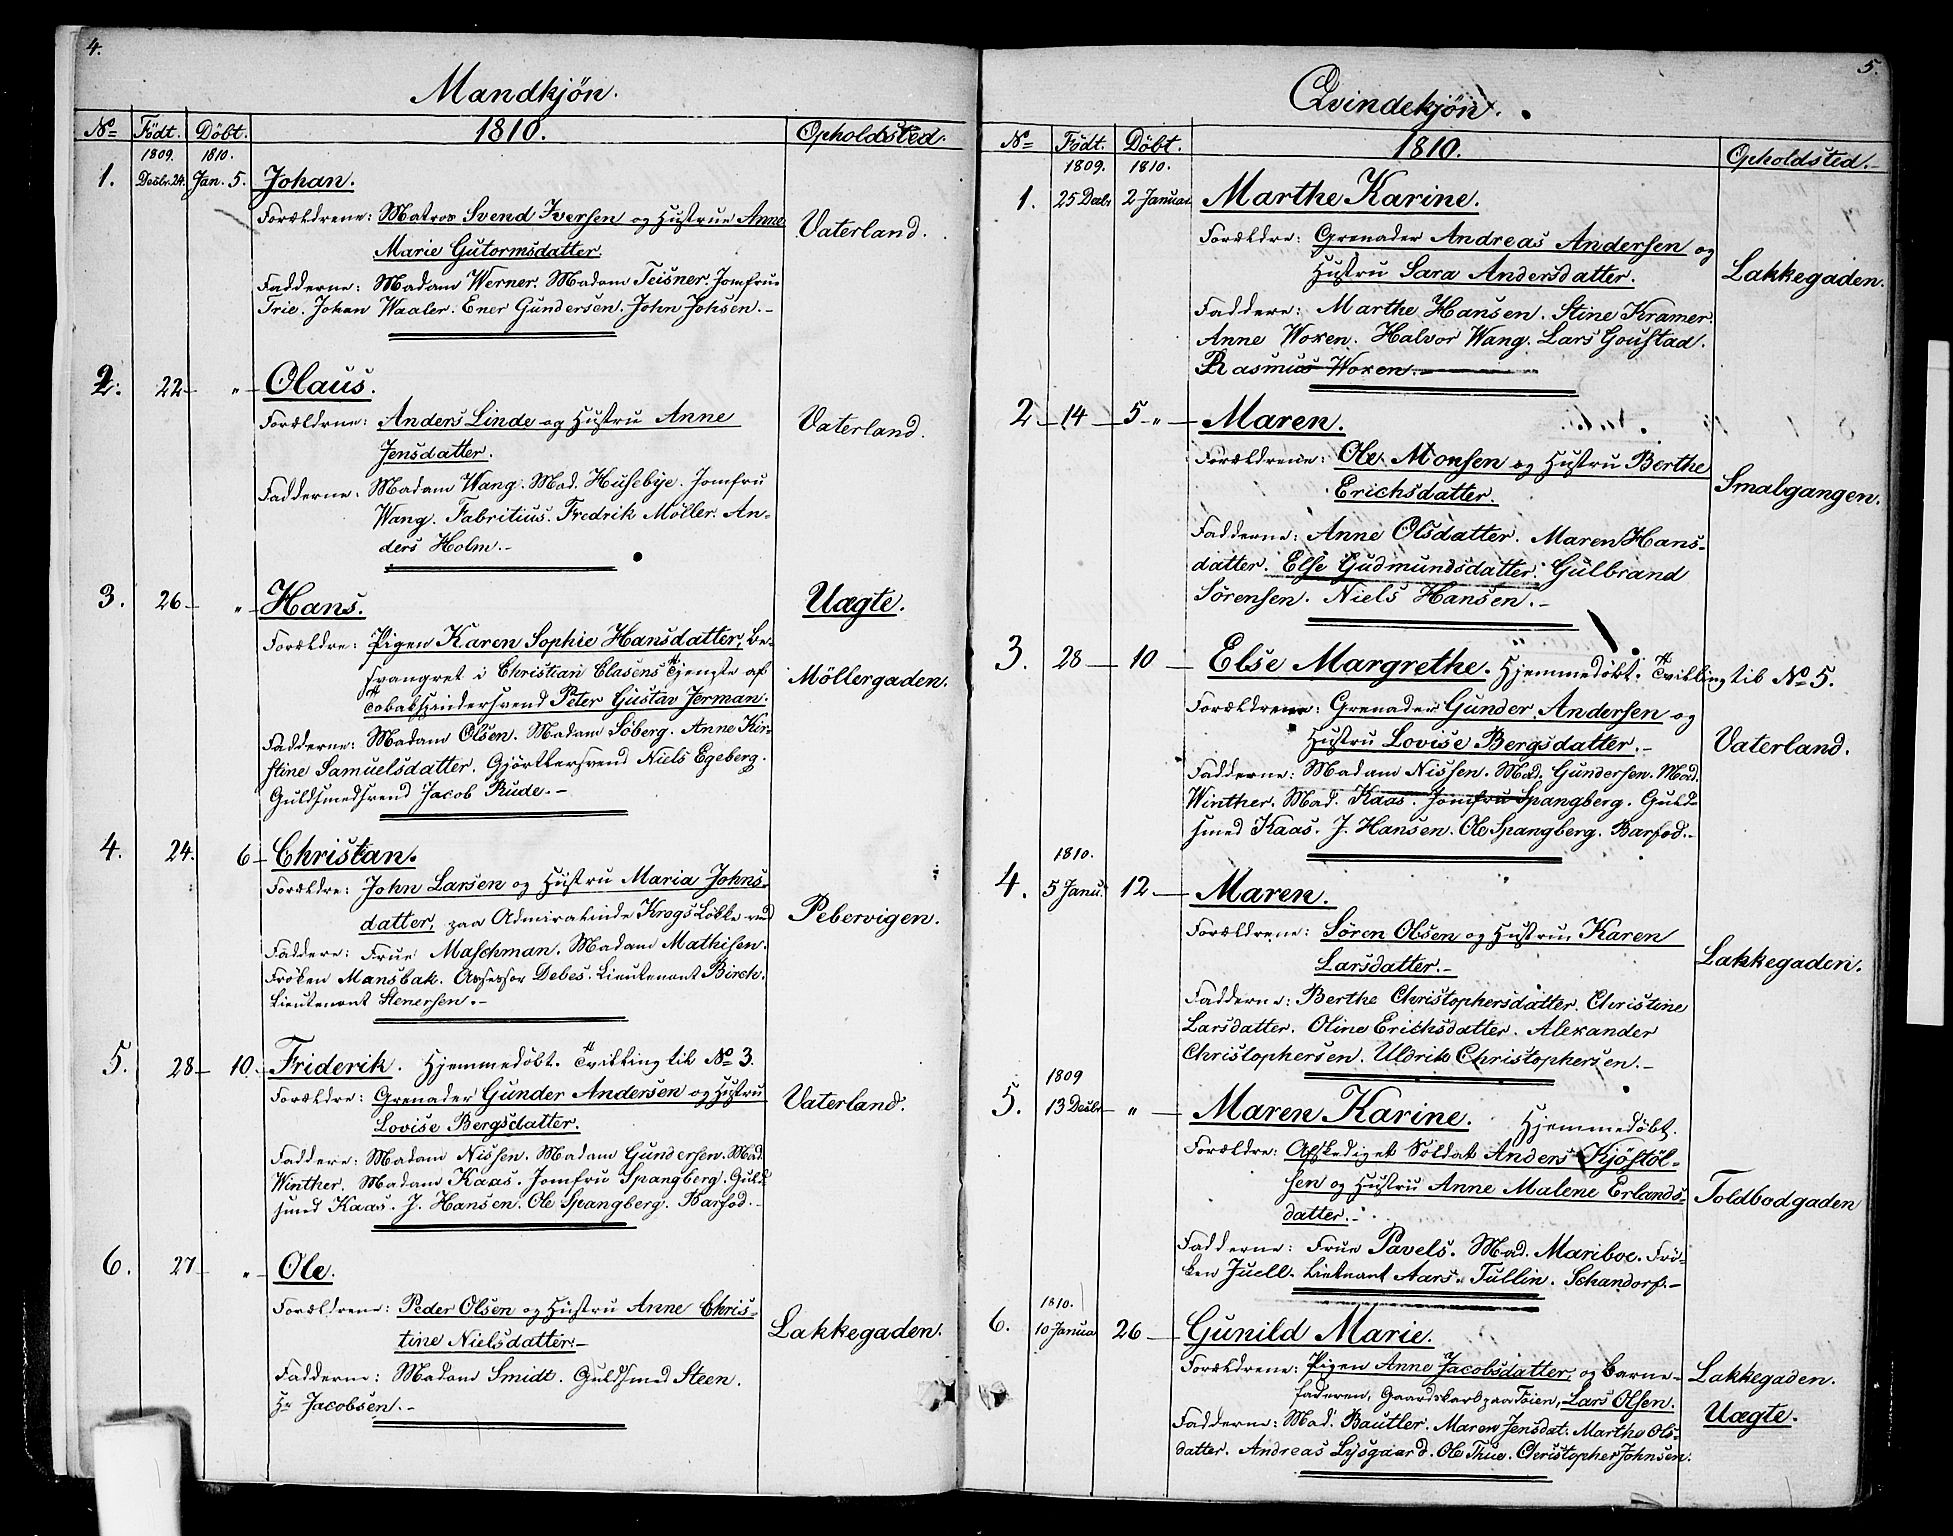 4.
Mandkjön.
No Födt. Döbt. 1810. Opholdsted.
1809. 1810.
1. Decbr. 24. Jan. 5. Johan.
Forældrene: Matros Svend Iversen og Hustrue Anne Vaterland.
Marie Gutormsdatter.
Fadderne: Madam Werner. Madam Teisner. Jomfrue
Trie. Johan Waaler. Ener Gundersen. John Johsen.-
2. 22 - " - Olaus.
Forældrne: Anders Linde og Hustru Anne Vaterland.
Jensdatter.
Fadderne: Madam Wang. Mad. Husebye. Jomfru
Wang. Fabritius. Fredrik Möller. An-
ders Holm.-
3. 26 - " - Hans. Uægte.
Forældre: Pigen Karen Sophie Hansdatter, be-
svangret i Christian Clasens Tjenste af Möllergaden.
Tobakspindersvend Peter Gustav Jerman.
Fadderne: Madam Olsen. Madam Söberg. Anne Kir-
stine Samuelsdatter. Gjörtlersvend Niels Egeberg.
Guldsmedsvend Jacob Rude.-
4. 24. 6 - Christian.
Forældre: John Larsen og Hustru Maria Johns-
datter, paa Admiralinde Krogs Løkke ved Pebervigen.
Faddere: Frue Maschman. Madam Mathisen.
Fröken Mansbak. Assessor Debes. Lieutenant Birch.
Lieutenant Stenersen.-
5. 28 - 10. Friderik. Hjemmedöbt. Tvilling til No 3.
Forældre: Grenader Gunder Andersen og Hustru Vaterland.
Lovise Bergsdatter.
Faddere: Madam Nissen. Madam Gundersen. Mad.
Winther. Madam Kaas. Jomfru Spangberg. Guld-
smed Kaas. J. Hansen. Ole Spangberg. Barfod.-
6. 27 - " - Ole.
Forældrene: Peder Olsen og Hustru Anne Chris- Lakkegaden.
tine Nielsdatter.-
Fadderne: Madam Smidt. Guldsmed Steen.
Hr Jacobsen.-
5.
Qvindekjön.
No Födt. Döbt. 1810. Opholdsted.-
1809. 1810.
1. 25 Decbr 2 Januar. Marthe Karine.
Forældre: Grenader Andreas Andersen og
Hustru Sara Andersdatter. Lakkegaden.
Faddere: Marthe Hansen. Stine Kramer.
Anne Woxen. Halvor Wang. Lars Goustad.
Rasmus Woxen.-
2 - 14 - 5 - " - Maren.
Forældrene: Ole Monsen og Hustru Berthe Smalgangen.
Erichsdatter.
Fadderne: Anne Olsdatter. Maren Hans-
datter. Else Gudmundsdatter. Gulbrand
Sörensen. Niels Hansen.-
3. 28 - 10 - Else Margrethe. Hjemmedöbt. Tvilling til No 5.
Forældrene: Grenader Gunder Andersen og
Hustru Lovise Bergsdatter.- Vaterland.
Fadderne: Madam Nissen. Mad. Gundersen. Mad.
Winther. Mad. Kaas. Jomfru Spangberg. Guld-
smed Kaas. J. Hansen. Ole Spangberg. Barfod.-
1810.
4. 5 Janu. 12 - Maren.
Forældrene: Sören Olsen og Hustrue Karen
Larsdatter.- Lakkegaden.
Fadderne: Berthe Christophersdatter. Christine
Larsdatter. Oline Erichsdatter. Alexander
Christophersen. Uldrik Christophersen.-
1809
5. 13 Decbr - " - Maren Karine. Hjemmedöbt.
Forældre: Afskediget Soldat Anders Kjöstöl-
sen og Hustru Anne Malene Erlands- Toldbodgaden
datter.-
Fadderne: Frue Pavels. Mad. Mariboe. Frö-
ken Juell. Lietnant Aars. Tullin. Schandorf.-
1810.
6. 10 Janua 26 - Gunild Marie.
Forældrene: Pigen Anne Jacobsdatter, og Barne- Lakkegaden.
faderen, Gaardskarl paa Töien, Lars Olsen. Uægte.
Fadderne: Mad. Bautler. Maren Jensdat. Marthe Ols-
datter. Andreas Lysgaard. Ole Thue. Christopher Johnsen.